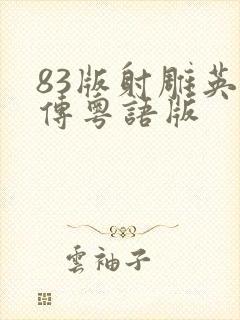 83版射雕英
傳粵語版
雲袖子